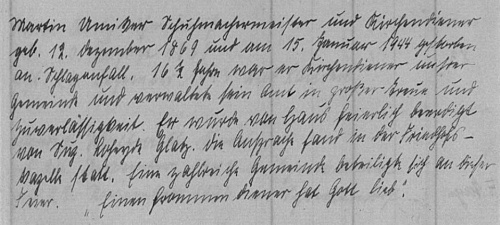 Martin Umißer Schuhmachermeister und Kirchendiener
geb. 12. Dezember 1869 und am 15. Januar 1944 gestorben
an Schlaganfall. 16 ½ Jahre war er Kirchendiener unsrer
Gemeinde und verwaltete sein Amt in großer Treue und
Zuverlässigkeit. Er wurde von Haus feierlich beerdigt
von Sup. Glatz. Die Ansprache fand in der Friedhofs-
kapelle statt. Eine zahlreiche Gemeinde beteiligte sich an dieser
Feier. „Einen frommen Diener hat Gott lieb".